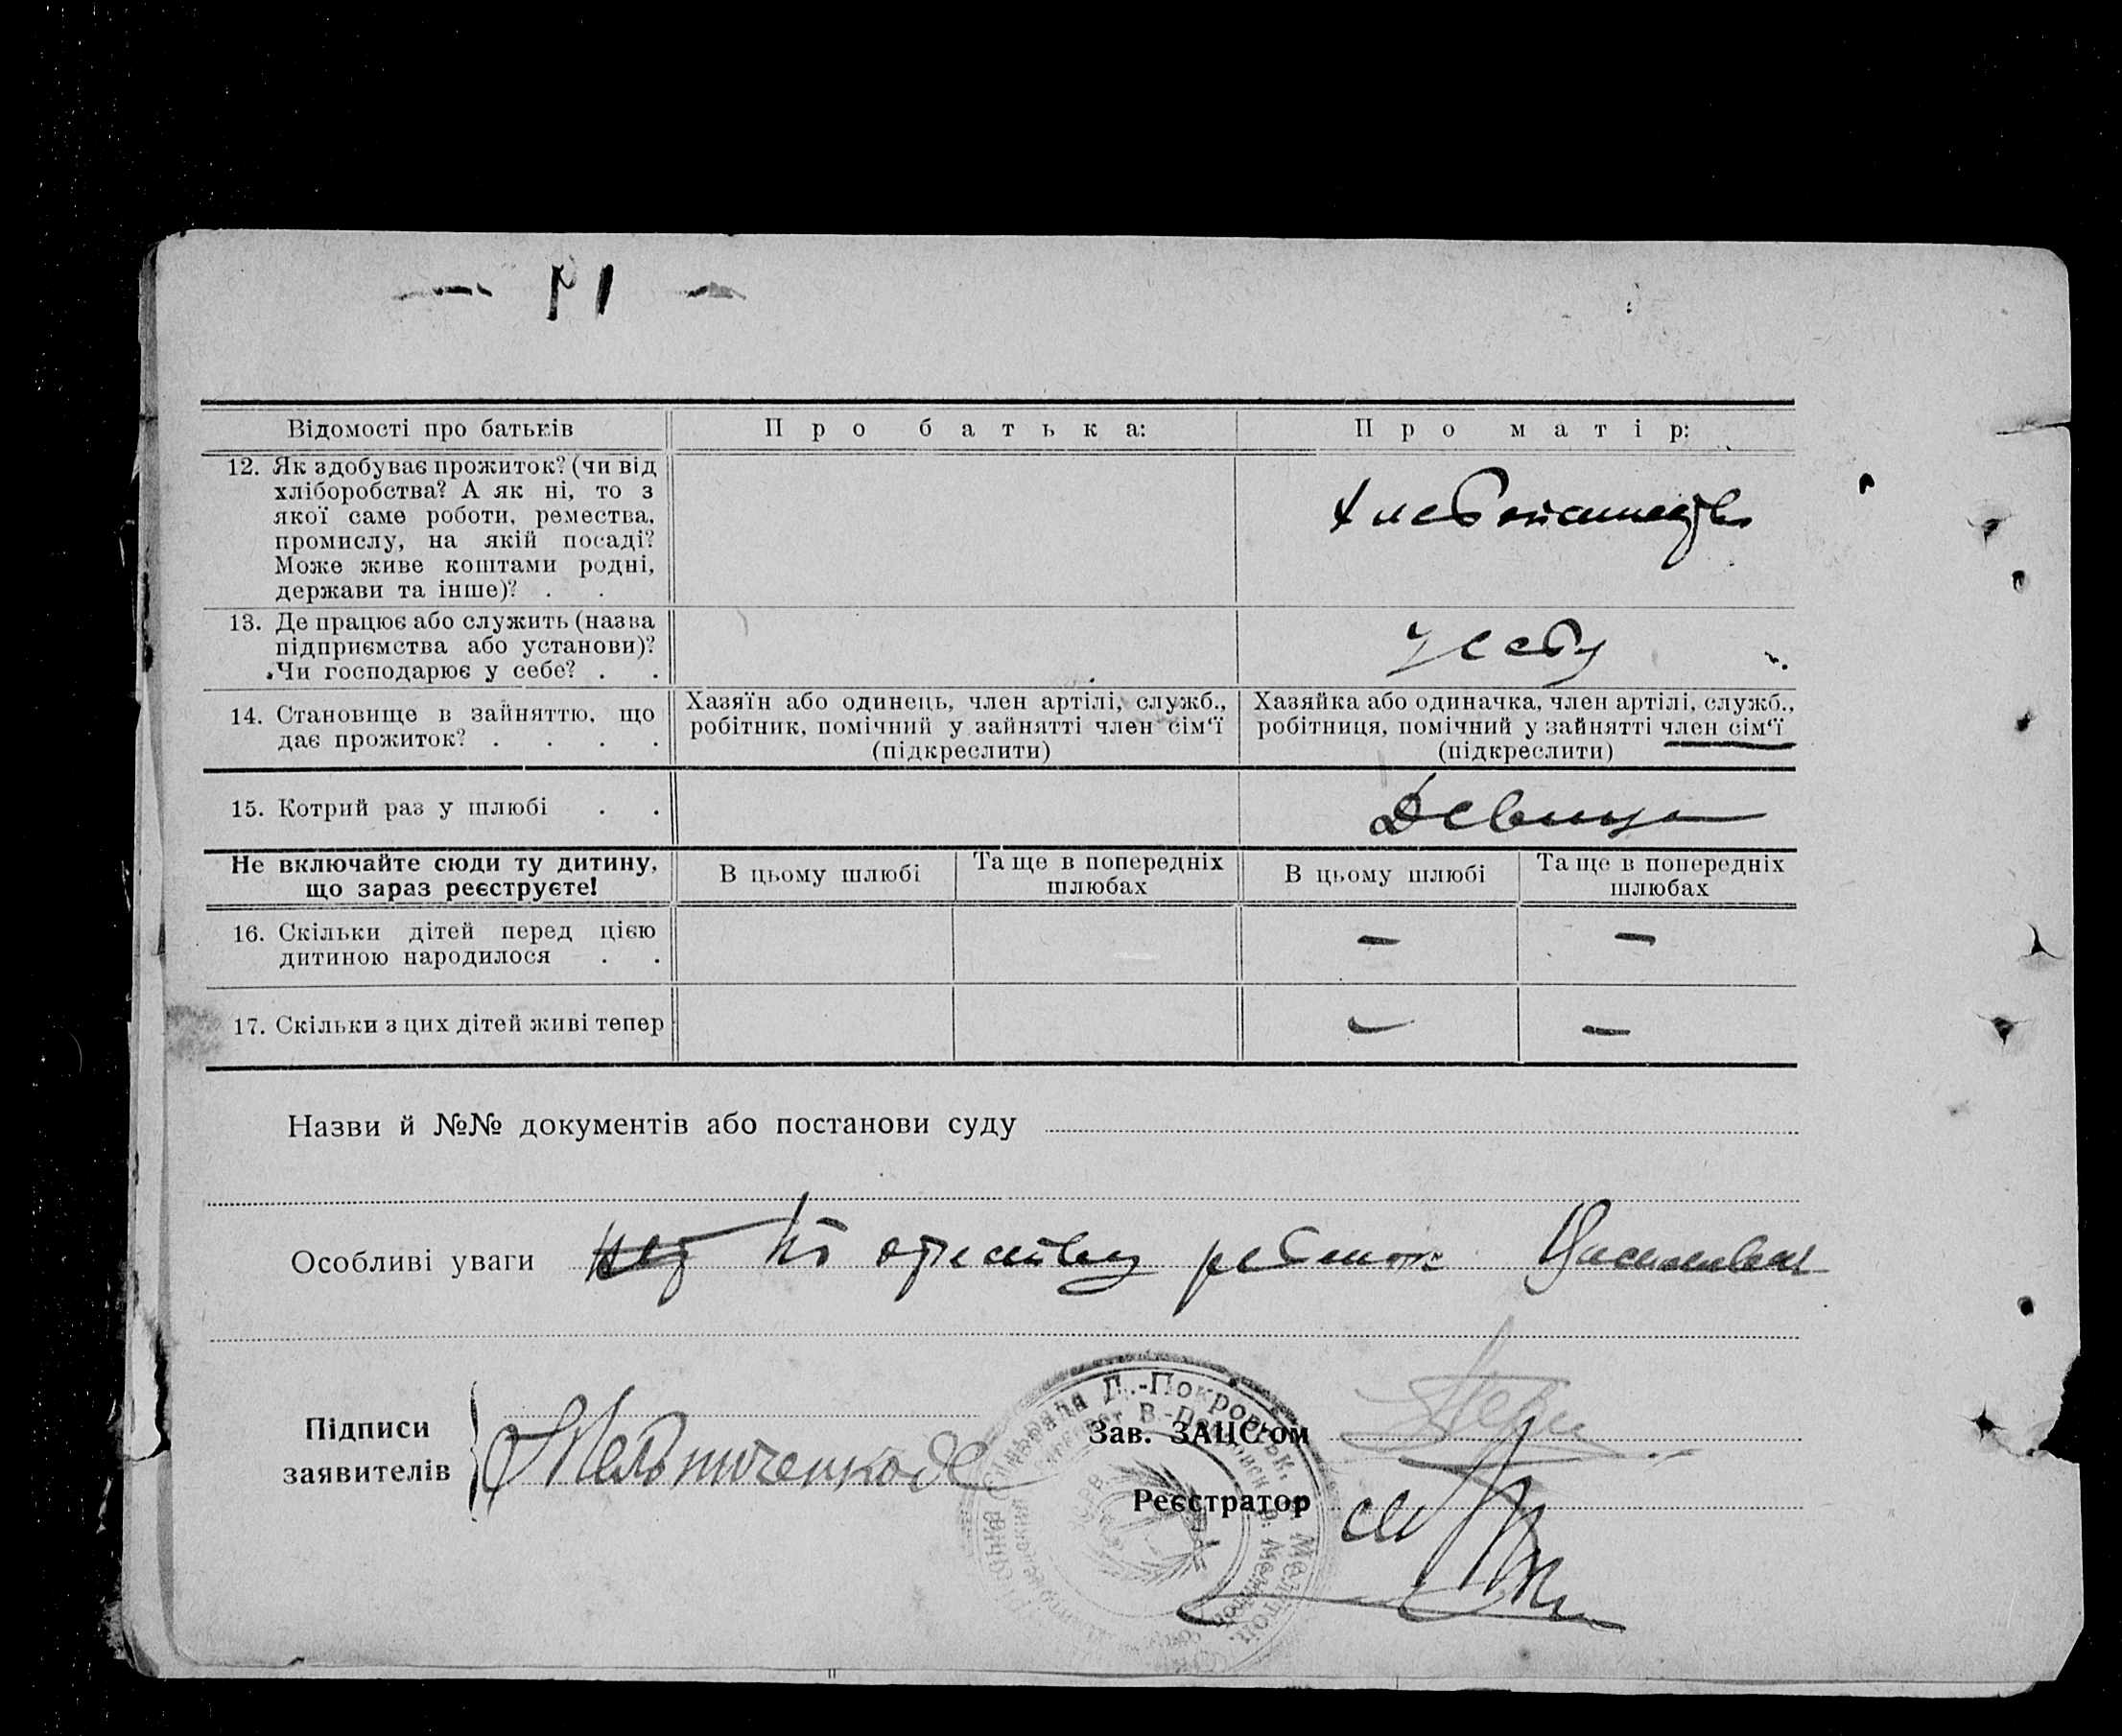 Відомості про батьків
Про батька:
Про матір:
12. Як здобуває прожиток? (чи від
хліборобства? А як ні, то з
якої саме роботи, ремества,
промислу, на якій посаді?
Може живе коштами родні,
держави та інше)? . .
13. Де працює або служить (назва
підприємства або установи)?
Чи господарює у себе? . .
у себя
14. Становище в зайняттю, що
дає прожиток? . . . .
Хазяїн або одинець, член артілі, служб.,
робітник, помічний у зайнятті член сім'ї
(підкреслити)
Хазяйка або одиначка, член артілі, служб.,
робітниця, помічний у зайнятті член сім'ї
(підкреслити)
15. Котрий раз у шлюбі . .
Девица
Не включайте сюди ту дитину,
що зараз реєструєте!
В цьому шлюбі
Та ще в попередніх
шлюбах
В цьому шлюбі
Та ще в попередніх
шлюбах
16. Скільки дітей перед цією
дитиною народилося . .
— —
17. Скільки з цих дітей живі тепер
— —
Назви й №№ документів або постанови суду
Особливі уваги По отчеству
Підписи
заявителів
Зав. ЗАЦС'ом
Реєстратор